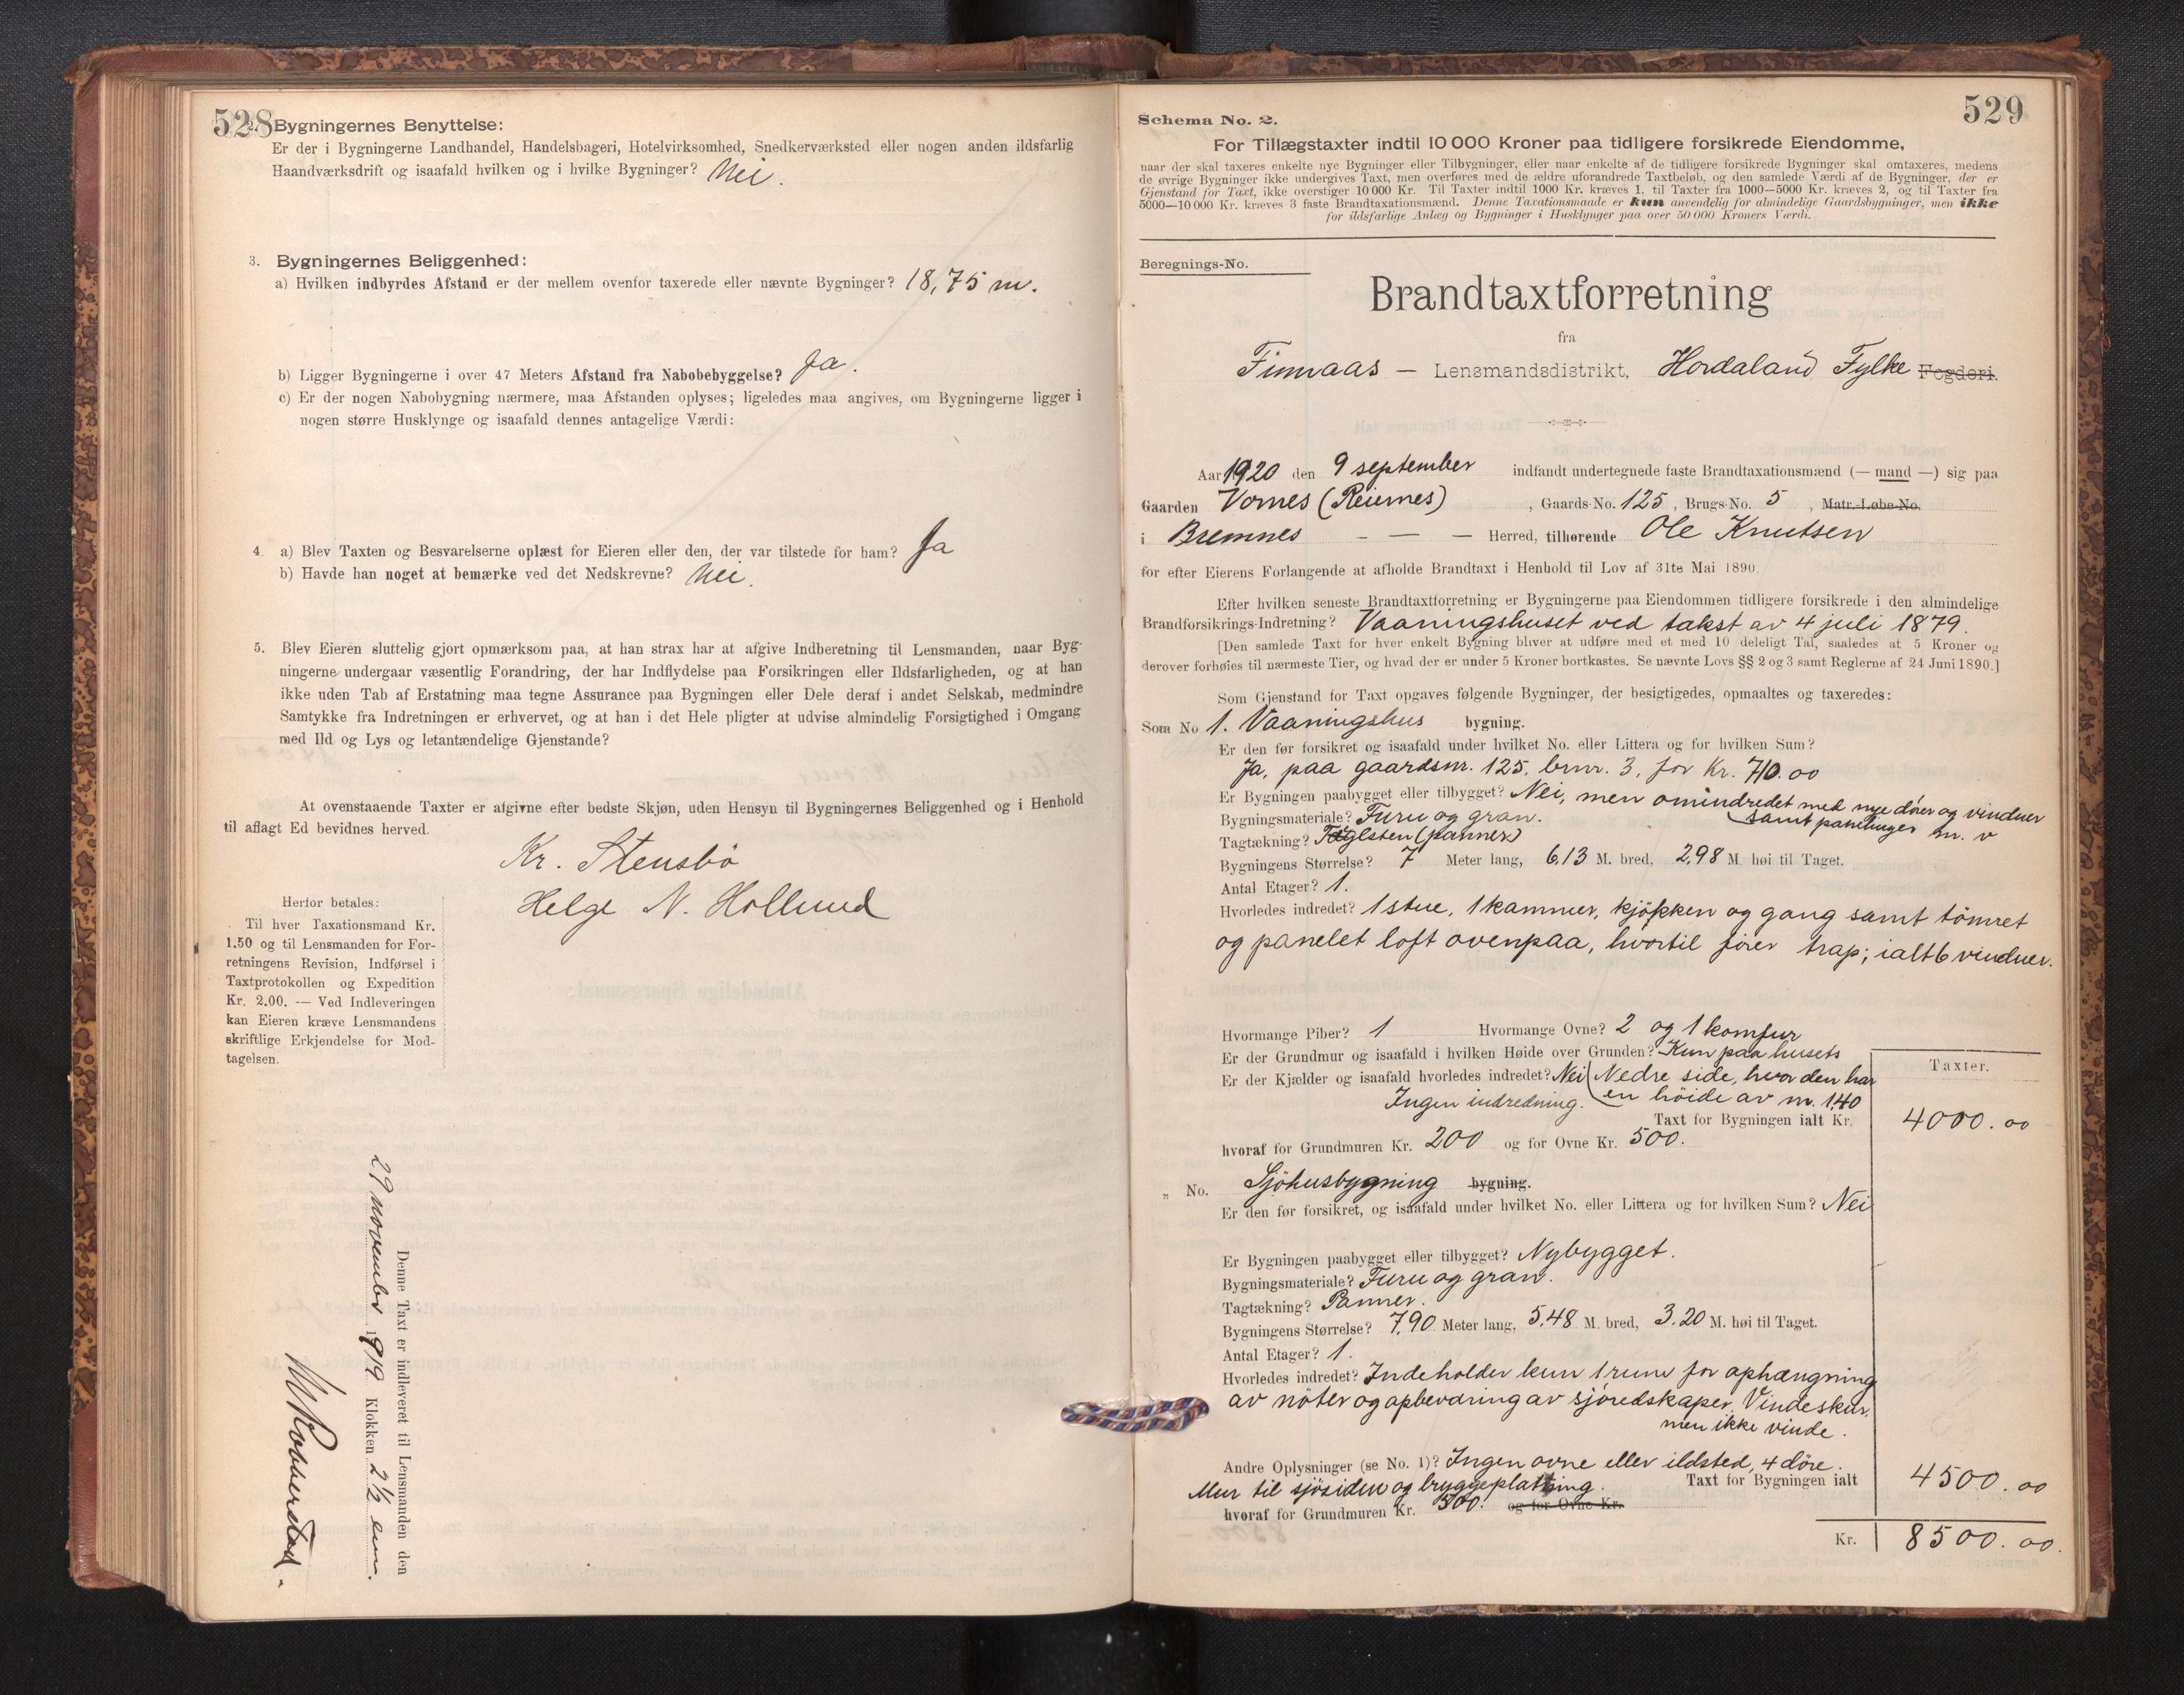 528
2. Bygningernes Benyttelse:
Er der i Bygningerne Landhandel, Handelsbageri, Hotelvirksomhed, Snedkerværksted eller nogen anden ildsfarlig
Haandværksdrift og isaafald hvilken og i hvilke Bygninger? Nei.
3. Bygningernes Beliggenhed:
a) Hvilken indbyrdes Afstand er der mellem ovenfor taxerede eller nævnte Bygninger? 18,75 m.
b) Ligger Bygningerne i over 47 Meters Afstand fra Nabobebyggelse? Ja.
c) Er der nogen Nabobygning nærmere, maa Afstanden oplyses; ligeledes maa angives, om Bygningerne ligger i
nogen større Husklynge og isaafald dennes antagelige Værdi:
4. a) Blev Taxten og Besvarelserne oplæst for Eieren eller den, der var tilstede for ham? Ja
b) Havde han noget at bemærke ved det Nedskrevne? Nei.
5. Blev Eieren sluttelig gjort opmærksom paa, at han strax har at afgive Indberetning til Lensmanden, naar Byg-
ningerne undergaar væsentlig Forandring, der har Indflydelse paa Forsikringen eller Ildsfarligheden, og at han
ikke uden Tab af Erstatning maa tegne Assurance paa Bygningen eller Dele deraf i andet Selskab, medmindre
Samtykke fra Indretningen er erhvervet, og at han i det Hele pligter at udvise almindelig Forsigtighed i Omgang
med Ild og Lys og letantændelige Gjenstande?
At ovenstaaende Taxter er afgivne efter bedste Skjøn, uden Hensyn til Bygningernes Beliggenhed og i Henhold
til aflagt Ed bevidnes herved.
Kr. Stensbö
Helge N. Hollund
Herfor betales:
Til hver Taxationsmand Kr.
1.50 og til Lensmanden for For-
retningens Revision, Indførsel i
Taxtprotokollen og Expedition
Kr. 2.00. — Ved Indleveringen
kan Eieren kræve Lensmandens
skriftlige Erkjendelse for Mod-
tagelsen.
Denne Taxt er indleveret til Lensmanden den
29 november 1919 Klokken 2½ em.
Robberstad.
529
Schema No. 2.
For Tillægstaxter indtil 10 000 Kroner paa tidligere forsikrede Eiendomme,
naar der skal taxeres enkelte nye Bygninger eller Tilbygninger, eller naar enkelte af de tidligere forsikrede Bygninger skal omtaxeres, medens
de øvrige Bygninger ikke undergives Taxt, men overføres med de ældre uforandrede Taxtbeløb, og den samlede Værdi af de Bygninger, der er
Gjenstand for Taxt, ikke overstiger 10 000 Kr. Til Taxter indtil 1000 Kr. kræves 1, til Taxter fra 1000—5000 Kr. kræves 2, og til Taxter fra
5000—10 000 Kr. kræves 3 faste Brandtaxationsmænd. Denne Taxationsmaade er kun anvendelig for almindelige Gaardsbygninger, men ikke
for ildsfarlige Anlæg og Bygninger i Husklynger paa over 50 000 Kroners Værdi.
Beregnings-No.
Brandtaxtforretning
fra
Finnaas — Lensmandsdistrikt, Hordaland Fylke Fogderi.
Aar 1920 den 9 september indfandt undertegnede faste Brandtaxationsmænd (— mand —) sig paa
Gaarden Vornes (Reiernes), Gaards-No. 125, Brugs-No. 5, Matr.-Løbe-No.
i Bremnes - — — Herred, tilhørende Ole Knutsen
for efter Eierens Forlangende at afholde Brandtaxt i Henhold til Lov af 31te Mai 1890.
Efter hvilken seneste Brandtaxtforretning er Bygningerne paa Eiendommen tidligere forsikrede i den almindelige
Brandforsikrings-Indretning? Vaaningshuset ved takst av 4 juli 1879.
[Den samlede Taxt for hver enkelt Bygning bliver at udføre med et med 10 deleligt Tal, saaledes at 5 Kroner og
derover forhøies til nærmeste Tier, og hvad der er under 5 Kroner bortkastes. Se nævnte Lovs §§ 2 og 3 samt Reglerne af 24 Juni 1890.]
Som Gjenstand for Taxt opgaves følgende Bygninger, der besigtigedes, opmaaltes og taxeredes:
Som No 1. Vaaningshus bygning.
Er den før forsikret og isaafald under hvilket No. eller Littera og for hvilken Sum?
Ja, paa gaardsnr. 125, brnr. 3, for Kr. 710.00
Er Bygningen paabygget eller tilbygget? Nei, men omindredet med nye dører og vinduer
samt panelinger m. v
Bygningsmateriale? Furu og gran.
Tagtækning? Taglsten (panner)
Bygningens Størrelse? 7 Meter lang, 6,13 M. bred, 2,98 M. høi til Taget.
Antal Etager? 1.
Hvorledes indredet? 1 stue, 1 kammer, kjökken og gang samt tömret
og panelet loft ovenpaa, hvortil förer trap; ialt 6 vinduer.
Hvormange Piber? 1 Hvormange Ovne? 2 og 1 komfur
Er der Grundmur og isaafald i hvilken Høide over Grunden? Kun paa husets
Er der Kjælder og isaafald hvorledes indredet? Nei (Nedre side, hvor den har
Ingen indredning. en höide av m. 1,40
Taxter.
Taxt for Bygningen ialt Kr. 4000.00
hvoraf for Grundmuren Kr. 200 og for Ovne Kr. 500.
„ No. Sjöhusbygning bygning.
Er den før forsikret, og isaafald under hvilket No. eller Littera og for hvilken Sum? Nei
Er Bygningen paabygget eller tilbygget? Nybygget.
Bygningsmateriale? Furu og gran.
Tagtækning? Panner.
Bygningens Størrelse? 7,90 Meter lang, 5,48 M. bred, 3.20 M. høi til Taget.
Antal Etager? 1.
Hvorledes indredet? Indeholder kun 1 rum for ophængning
av nöter og opbevaring av sjöredskaper. Vindeskur,
men ikke vinde.
Andre Oplysninger (se No. 1)? Ingen ovne eller ildsted, 4 döre.
Mur til sjösiden og bryggeplatting. Taxt for Bygningen ialt 4500.00
hvoraf for Grundmuren Kr. 500. og for Ovne Kr.
Kr. 8500.00.